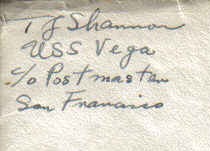 T J Shannon
USS Vega
c/o Postmaster
San Francisco